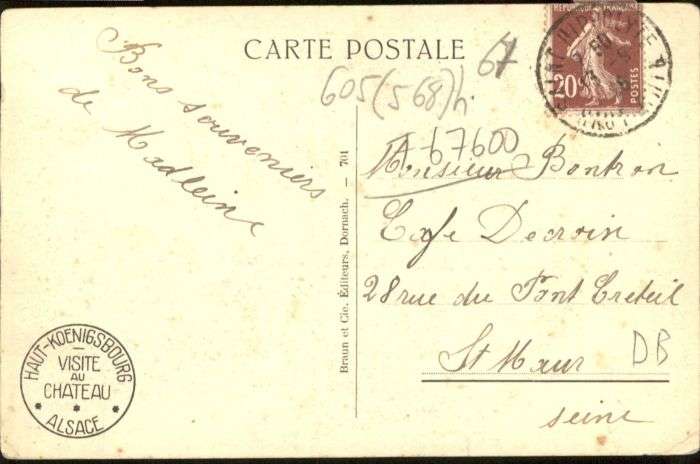 CARTE POSTALE
Bons souveniers
de Madleine
HAUT-KOENIGSBOURG
VISITE
AU
CHATEAU
ALSACE
Braun et Cie, Éditeurs, Dornach. — 701
605(568)h.
67
67600
REPUBLIQUE FRANÇAISE
20c
POSTES
Monsieur Bontron
Cafe Decroin
28 rue du Pont Creteil
St Maur
Seine
DB